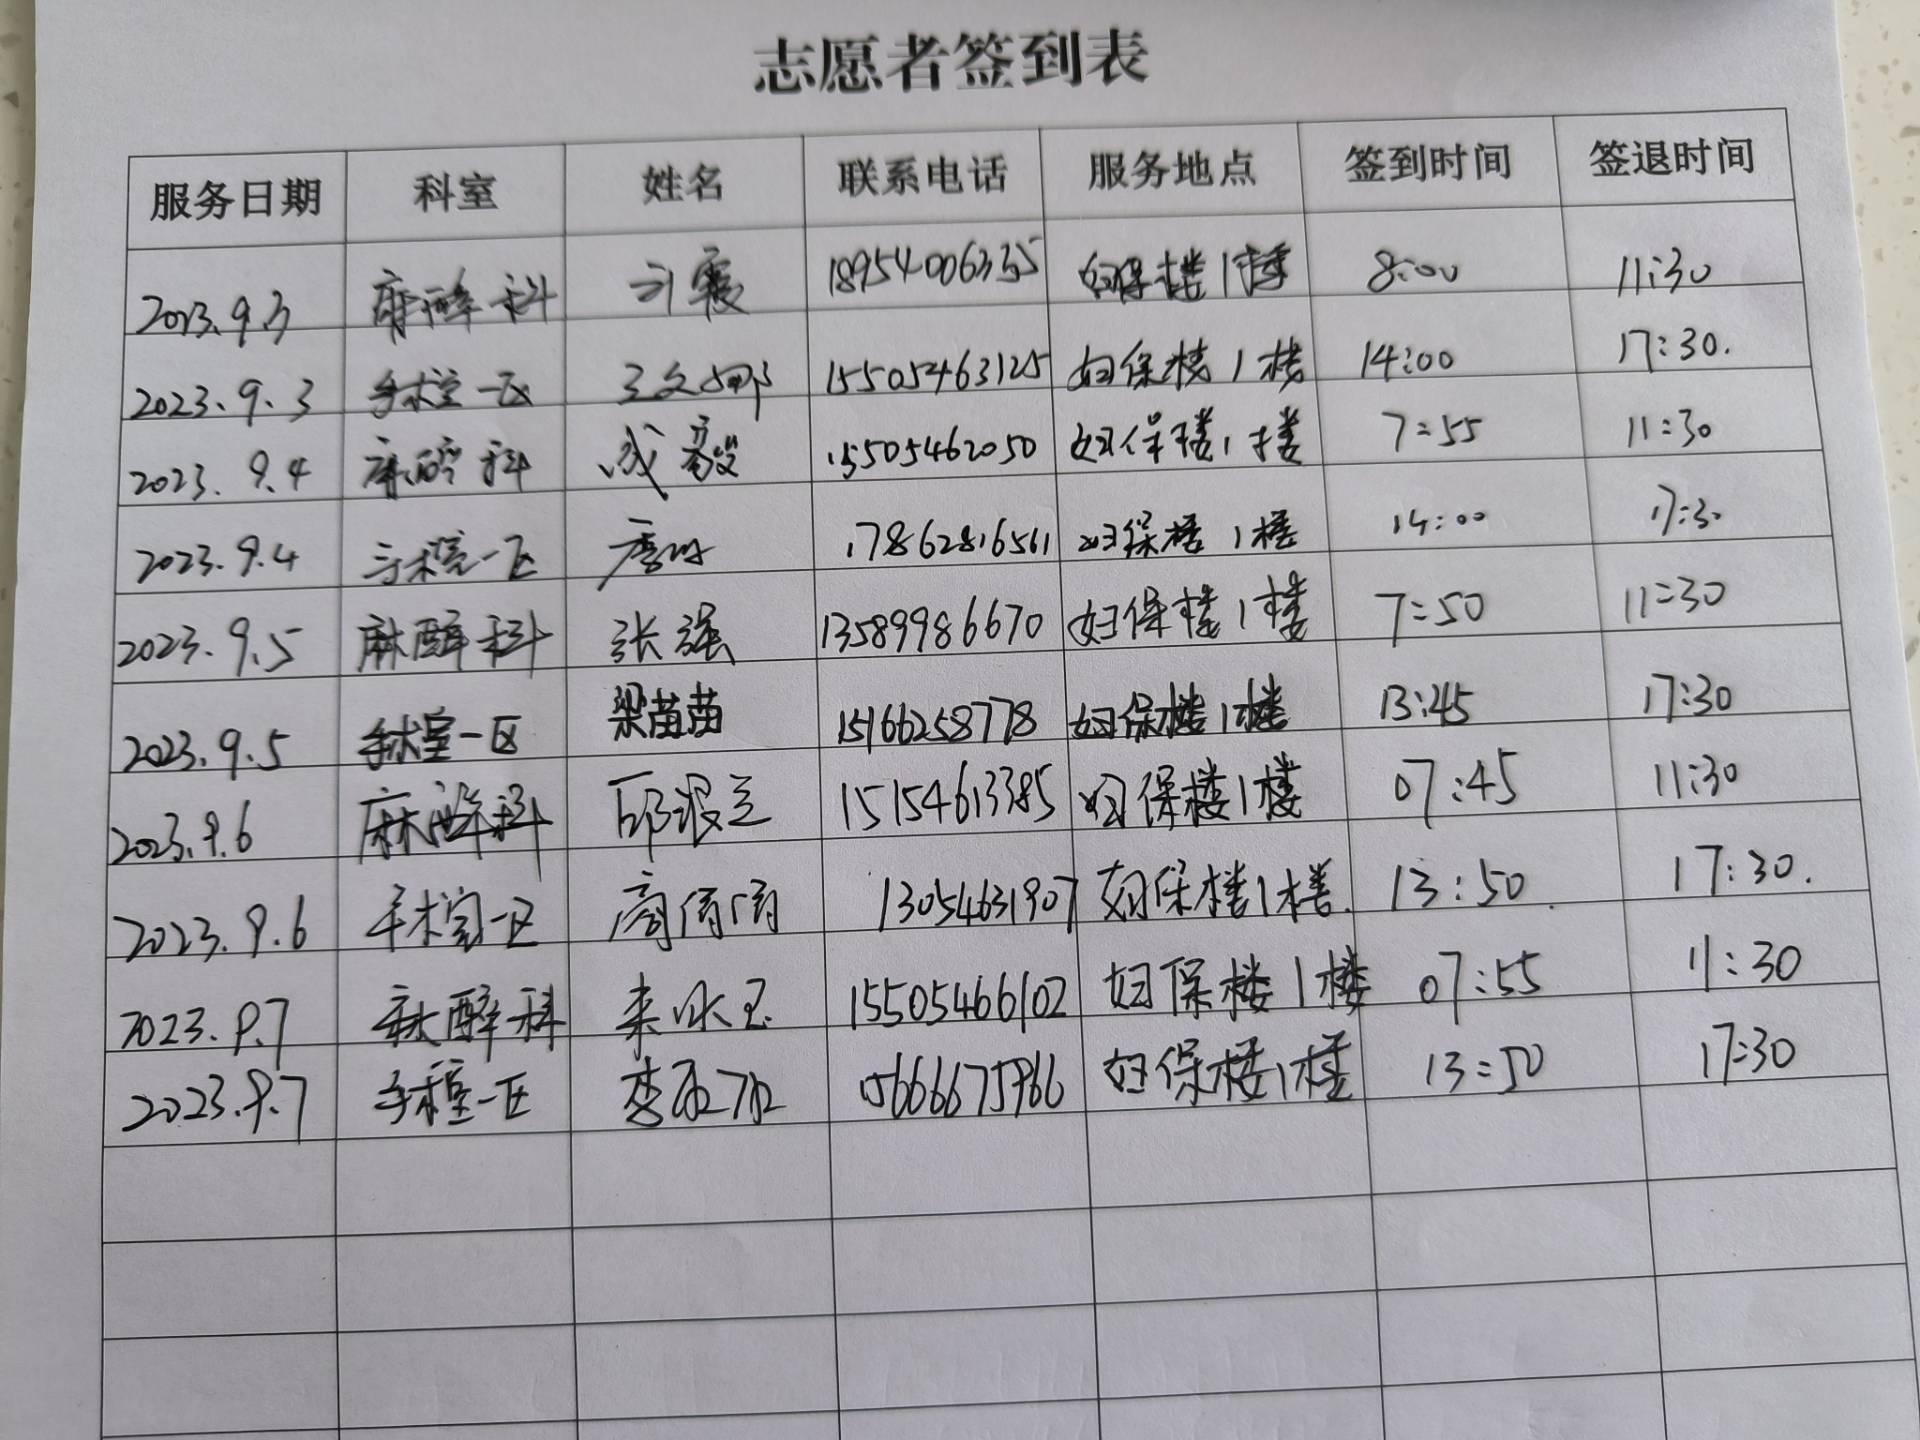 志愿者签到表
服务日期 科室 姓名 联系电话 服务地点 签到时间 签退时间
2023.9.3 麻醉科 刁霞 妇保楼1楼 8:00 11:30
2023.9.3 手术室一区 王文娜 15505463125 妇保楼1楼 14:00 17:30.
2023.9.4 麻醉科 成毅 15505462050 妇保楼1楼 7:55 11:30
2023.9.4 手术室一区 17862816561 妇保楼1楼 14:00 17:30
2023.9.5 麻醉科 张强 13589986670 妇保楼1楼 7:50 11:30
2023.9.5 手术室一区 梁苗苗 15166258778 妇保楼1楼 13:45 17:30
2023.9.6 麻醉科 15154613385 妇保楼1楼 07:45 11:30
2023.9.6 手术室一区 高倩倩 13054631907 妇保楼1楼. 13:50. 17:30.
2023.9.7 麻醉科 来冰玉 15505466102 妇保楼1楼 07:55 11:30
2023.9.7 手术室一区 妇保楼1楼 13:50 17:30